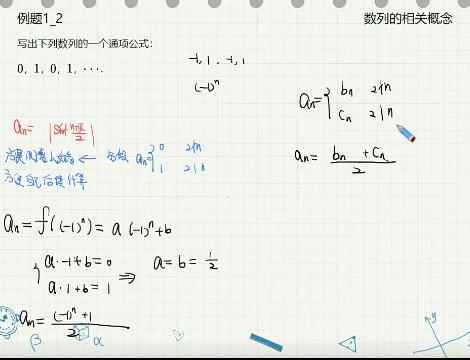 例题1_2
数列的相关概念
写出下列数列的一个通项公式：
0, 1, 0, 1, ⋯.
-1, 1, -1, 1
(-1)^n
a_n = { b_n 2∤n
c_n 2|n
a_n = |sin |
← 分段 a_n = { 0 2∤n
1 2|n
方便后续计算
a_n = (b_n + c_n)/2
a_n = f((-1)^n) = a(-1)^n + b
{ a·-1+b=0
a·1+b=1
⇒ a=b=1/2
a_n = ((-1)^n+1)/2
β
α
x
y